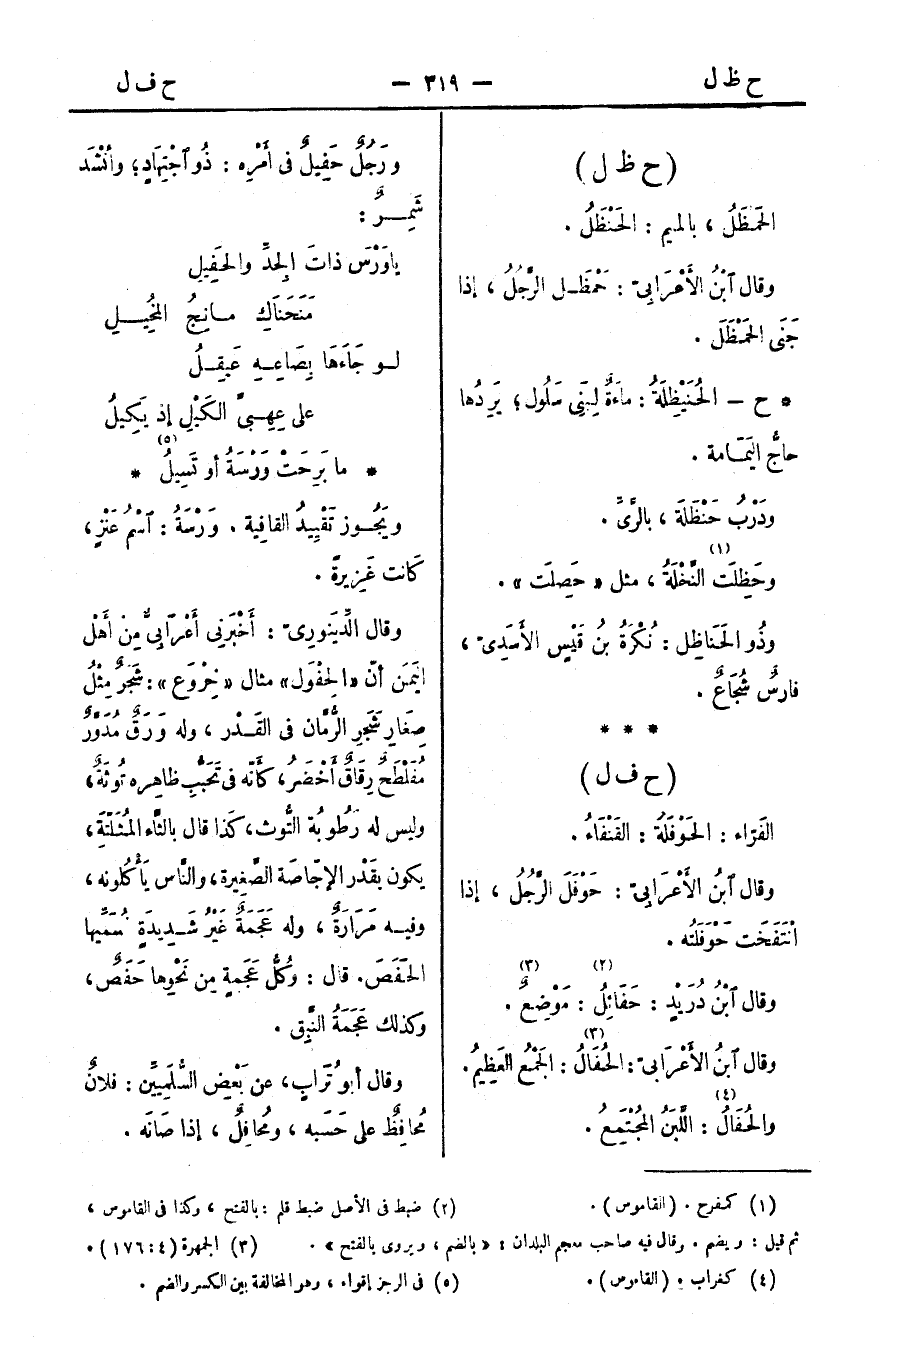 ح ظ ل
— ٣١٩ —
ح ف ل
(ح ظ ل)
الحَمْظَلُ ، بالميم : الحَنْظَلُ .
وقال ٱبْنُ الأَعْرَابِيّ : حَمْظَـل الرَّجُلُ ، إذا
جَنَى الحَمْظَلَ .
* ح – الحُنَيْظِلَةُ : ماءَةٌ لِبَنِى سَلُول ؛ يَرِدُها
حاجُّ اليَمَامة .
ودَرْبُ حَنْظَلَة ، بالرَّىّ .
وحَظِلَت النَّخْلَةُ (١) ، مثل « حَصِلَت » .
وذُو الحَنَاظِل : نُكْرَةُ بنُ قَيْسٍ الأَسَدِىّ ،
فارسٌ شُجَاعٌ .
* * *
(ح ف ل)
الفَرّاء : الحَوْفَلَةُ : القَنْفَاءُ .
وقال ٱبنُ الأَعْرَابِيّ : حَوْفَلَ الرَّجُلُ ، إذا
ٱنْتَفَخَت حَوْفَلَتُه .
وقال ٱبْنُ دُرَيْدٍ : حَفَائِلُ (٢) : مَوْضِعٌ (٣) .
وقال ٱبنُ الأَعْرَابِيّ : الحُفَالُ (٣) : الجَمْعُ العَظِيمُ .
والحُفَالُ (٤) : اللَّبَنُ المُجْتَمِعُ .
ورَجُلٌ حَفِيلٌ فى أَمْرِه : ذُو ٱجْتِهَادٍ ؛ وأَنْشَد
شَمِـرٌ :
ياوَرْسَ ذاتَ الجِدِّ والحَفِيلِ
مَنَحْنَاكِ مـانِحُ المُخِيـلِ
لـو جَاءَهَا بِصَاعِـهِ عَقِيـلُ
على عِهِـبَّى الكَيْلِ إذ يَكِيلُ
* ما بَرِحَتْ وَرْسَةُ أو تَسِيلُ (٥) *
ويَجُـوز تَقْيِيدُ القافية . وَرْسَةُ : ٱسْمُ عَنْزٍ ،
كَانت غَزِيرةً .
وقال الدِّينَوَرِىّ : أَخْبَرنِى أَعْرَابِىٌّ مِنْ أَهْل
اليَمَن أنّ «الحِفْوَل» مثال «خِرْوَع» : شَجَرٌ مِثْلُ
صِغَارِ شَجَرِ الرُّمَّان فى القَـدْر ، وله وَرَقٌ مُدَوَّرٌ
مُفَلْطَحٌ رِقَاقٌ أَخْضَرُ ، كأنّه فى تَحَبُّبِ ظاهِره تُوثَةٌ ،
وليس له رَطُوبةُ التُّوث ، كَذا قال بالثَّاء المُثَلَّثَةِ ،
يكون بقَدْر الإجّاصة الصَّغِيرة ، والنَّاس يَأْكُلونه ،
وفيـه مَرَارَةٌ ، وله عَجَمَةٌ غَيْرُ شَـدِيدَةٍ نُسَمِّيها
الحَفَصَ . قال : وكُلُّ عَجَمةٍ من نَحْوِها حَفَصٌ ،
وكذلك عَجَمَةُ النَّبِقِ .
وقال أبو تُرَابٍ ، عن بَعْضِ السُّلَمِيِّينَ : فلانٌ
مُحَافِظٌ على حَسَبه ، ومُحَافِلٌ ، إذا صَانَه .
(١) كفرح . (القاموس) .
(٢) ضبط فى الأصل ضبط قلم : بالفتح ، وكذا فى القاموس ،
ثم قيل : ويضم . وقال فيه صاحب معجم البلدان : « بالضم ، ويروى بالفتح » .
(٣) الجمهرة (٤ : ١٧٦) .
(٤) كغراب . (القاموس) .
(٥) فى الرجز إقواء ، وهو المخالفة بين الكسر والضم .